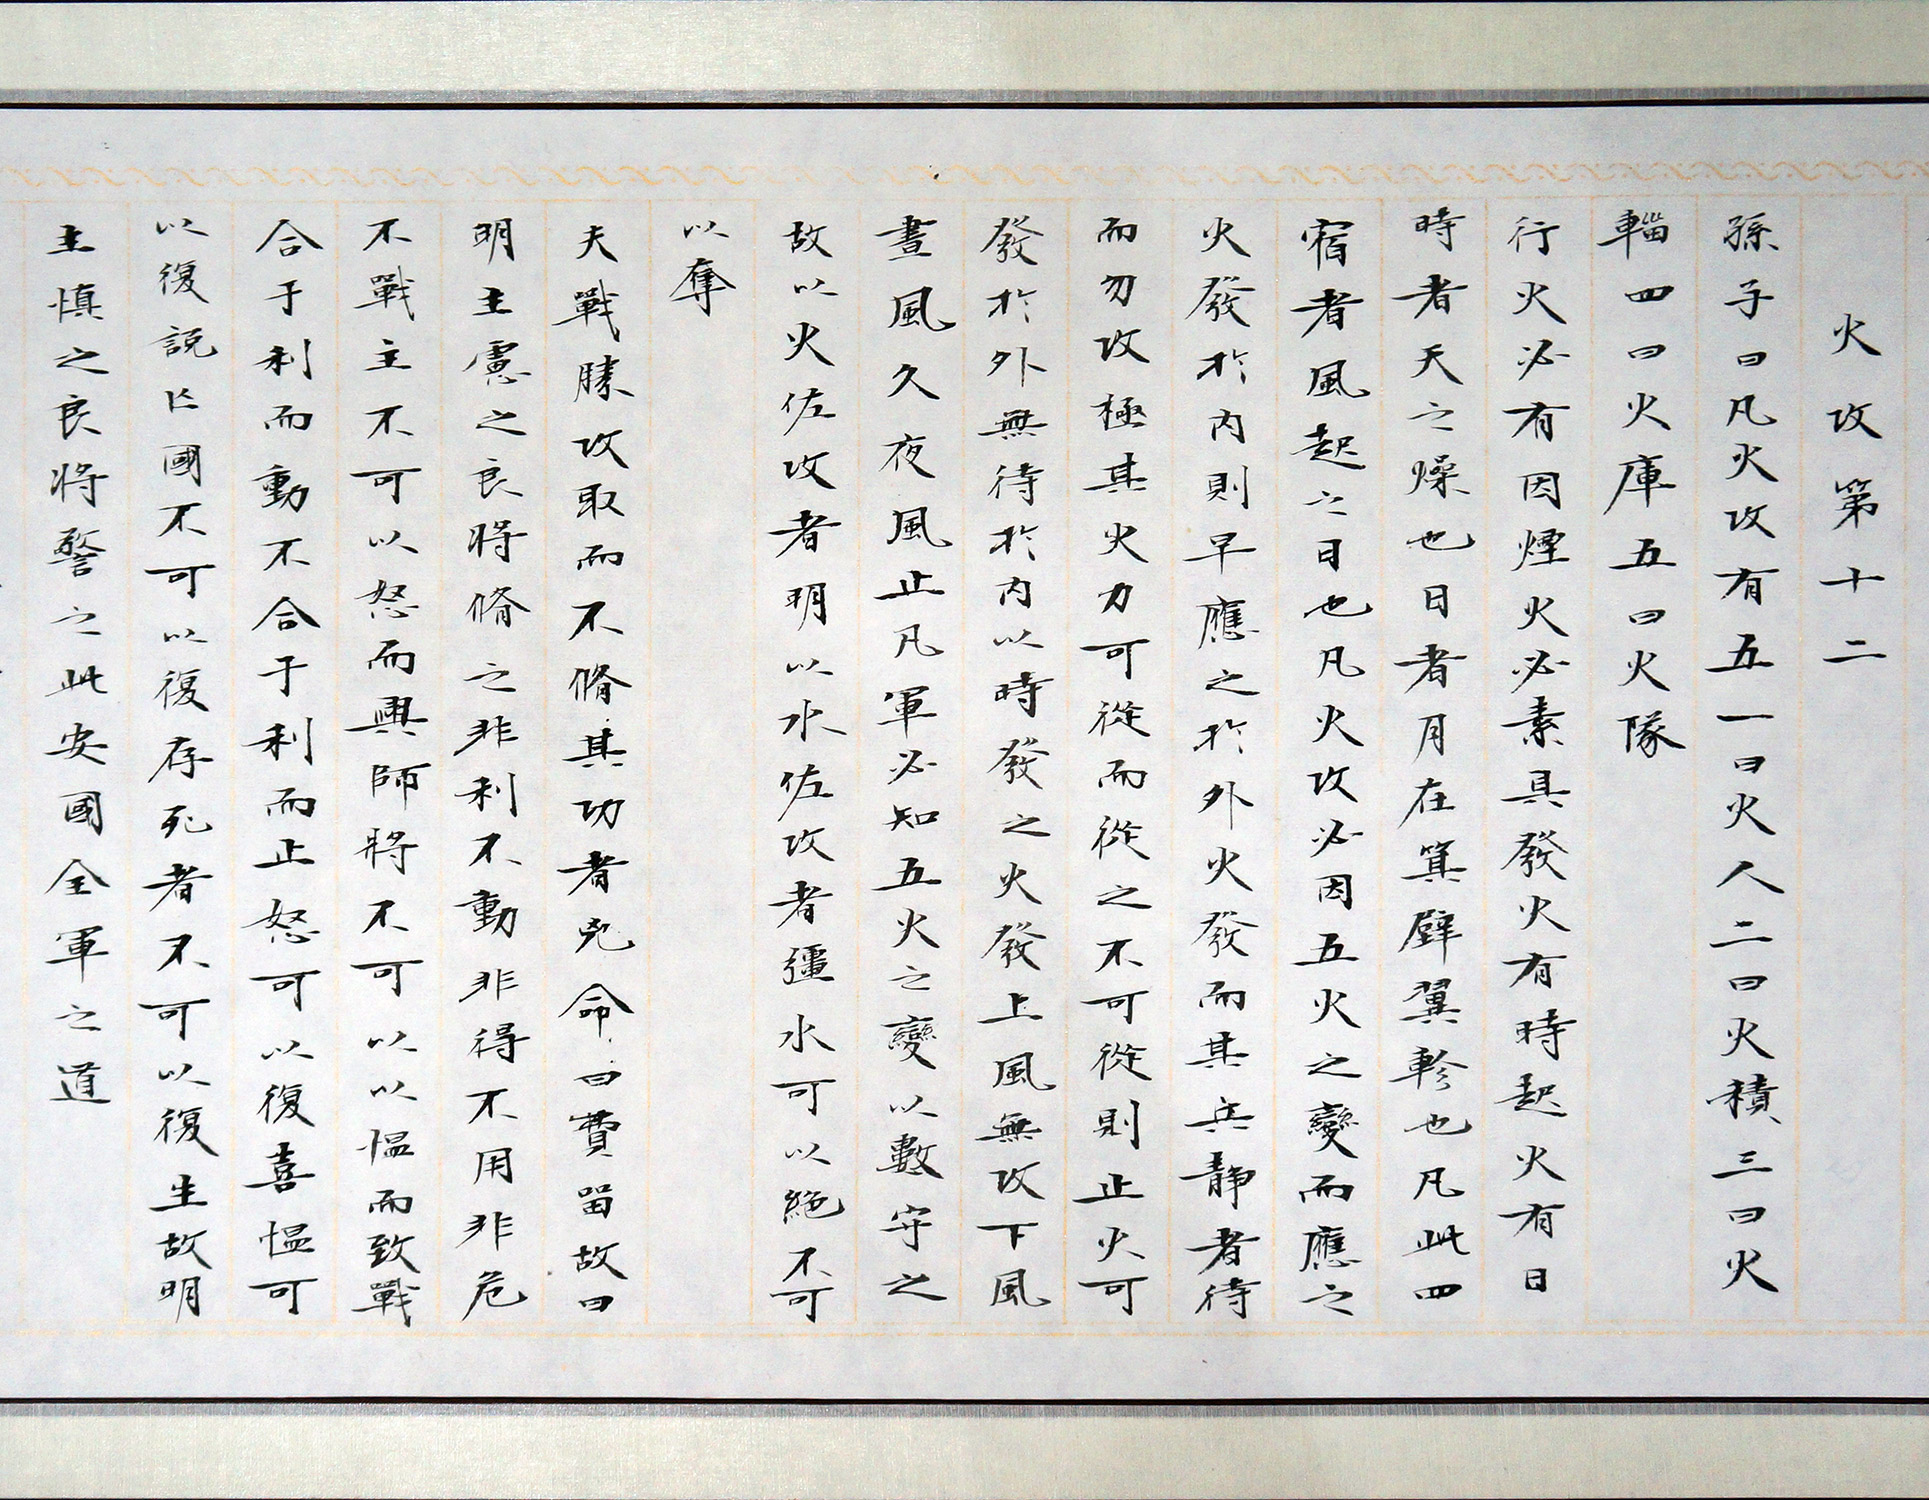 火攻第十二
孫子曰凡火攻有五一曰火人二曰火積三曰火
輜四曰火庫五曰火隊
行火必有因煙火必素具發火有時起火有日
時者天之燥也日者月在箕壁翼軫也凡此四
宿者風起之日也凡火攻必因五火之變而應之
火發於内則早應之於外火發而其兵靜者待
而勿攻極其火力可從而從之不可從則止火可
發於外無待於内以時發之火發上風無攻下風
晝風久夜風止凡軍必知五火之變以數守之
故以火佐攻者明以水佐攻者彊水可以絕不可
以奪
夫戰勝攻取而不脩其功者兇命曰費留故曰
明主慮之良將脩之非利不動非得不用非危
不戰主不可以怒而興師將不可以以愠而致戰
合于利而動不合于利而止怒可以復喜愠可
以復説亡國不可以復存死者不可以復生故明
主慎之良將警之此安國全軍之道